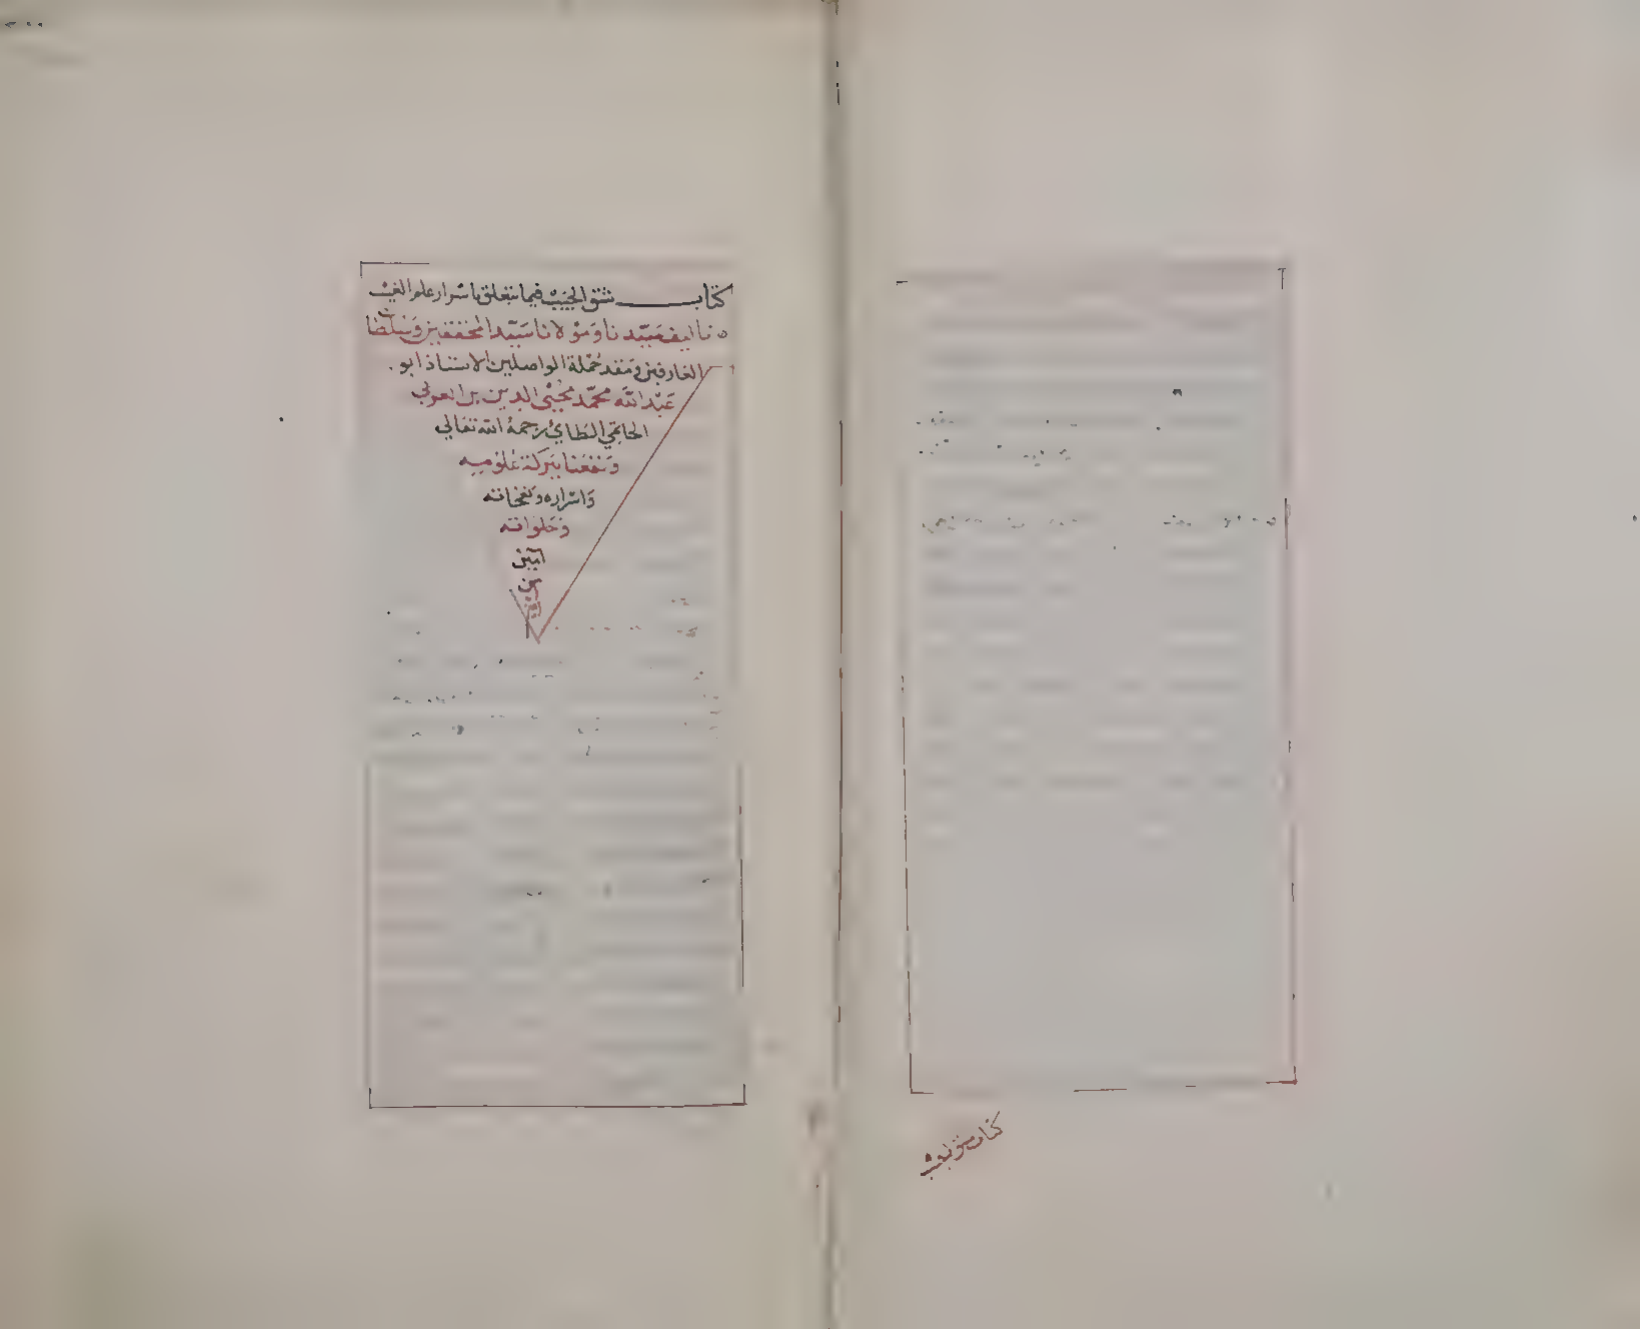 كتاب شق الجيب فيما يتعلق باسرار علم الغيب
تاليف سيدنا ومولانا سيد المحققين وسلطان
العارفين ومقد حملة الواصلين الاستاذ ابو
عبد الله محمد محيي الدين بن العربي
الحاتمي الطائي رحمة الله تعالي
ونفعنا ببركة علومه
واسراره ونفحاته
وخلواته
امين
كتاب شق الجيب